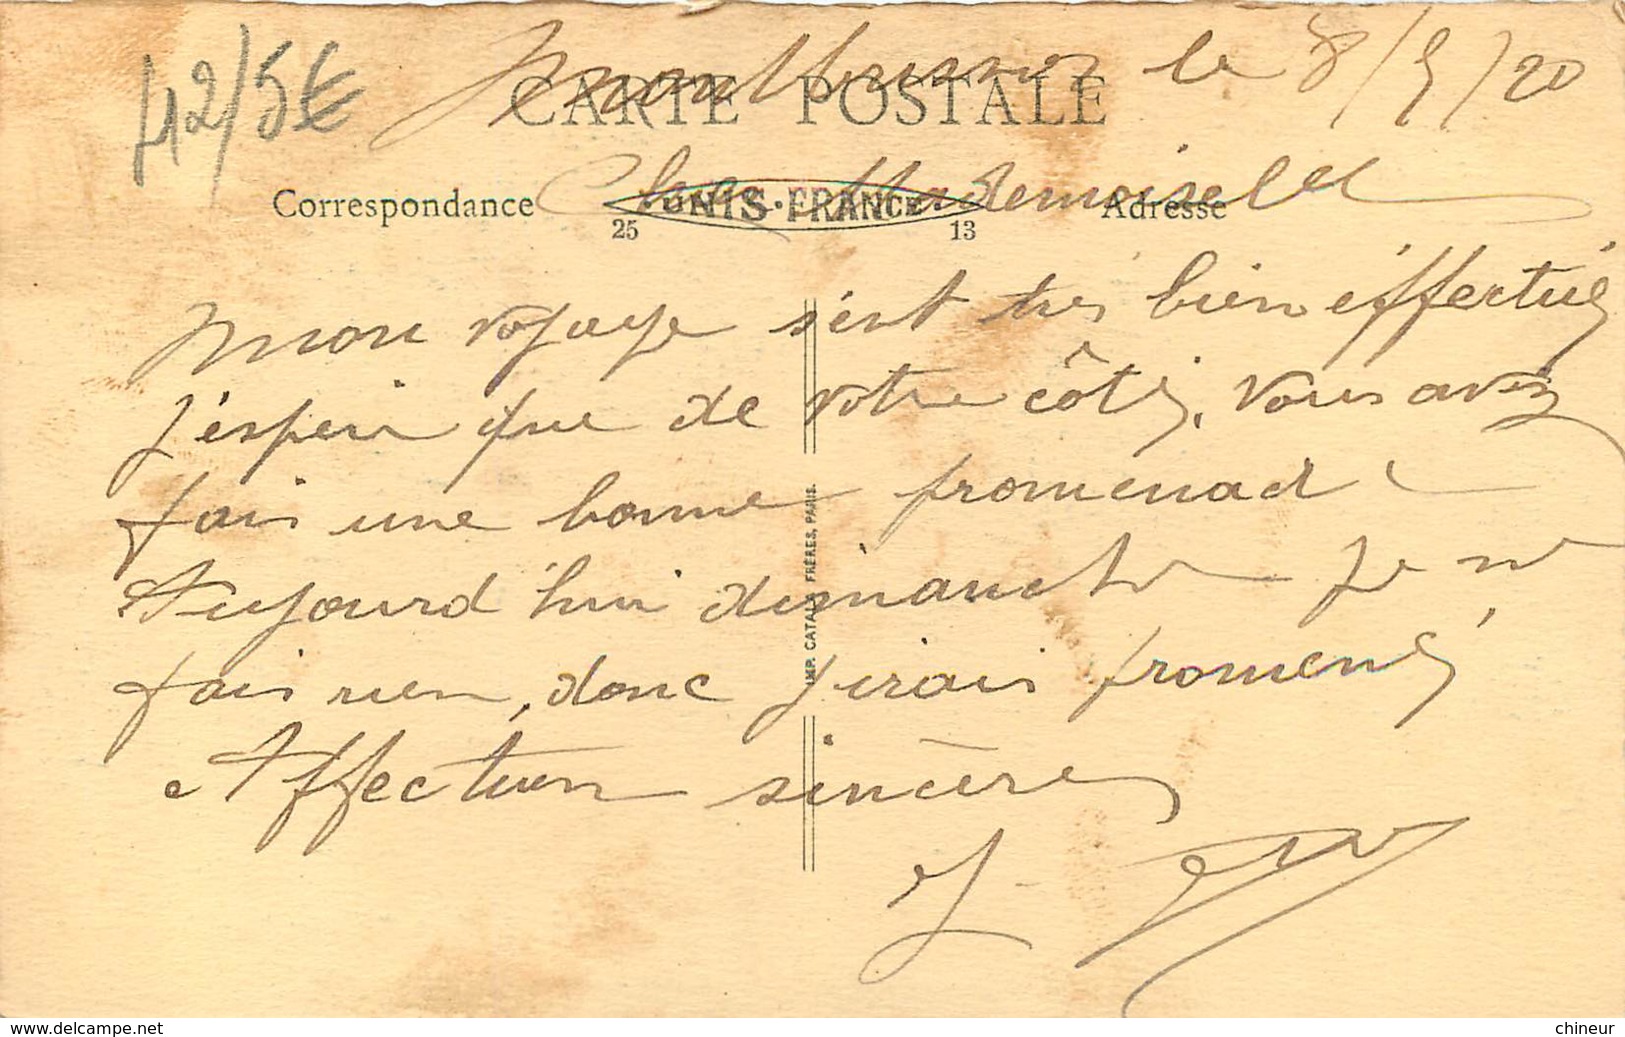 42/5€
Montbrison le 8/5/20
CARTE POSTALE
Correspondance
Adresse
Chère Mademoiselle
UNIS·FRANCE
25 13
Mon voyage s'est très bien effectué
j'espère que de votre côté, vous avez
fais une bonne promenade
Aujourd'hui dimanche je ne
fais rien, donc j'irais promené
Affection sincère
IMP. CATALA FRÈRES, PARIS.
www.delcampe.net
chineur